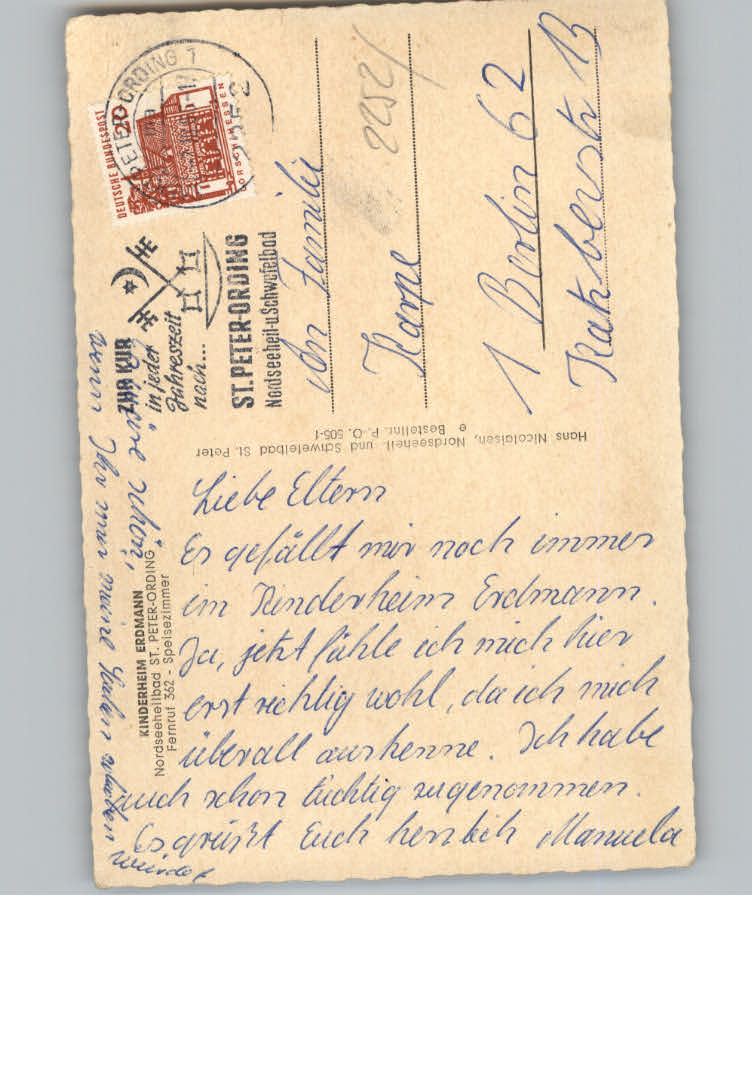 KINDERHEIM ERDMANN
Nordseeheilbad ST. PETER-ORDING
Fernruf 362 - Speisezimmer
Liebe Eltern
Es gefällt mir noch immer
im Kinderheim Erdmann.
Ja, jetzt fühle ich mich hier
erst richtig wohl, da ich mich
überall auskenne. Ich habe
auch schon tüchtig zugenommen.
Es grüßt Euch herzlich Manuela
wenn Ihr mir meine
würdet
schön,
Hans Nicolaisen, Nordseeheil- und Schwefelbad St. Peter
Bestellnr. P.-O. 505-f
ZUR KUR
in jeder
Jahreszeit
nach...
ST. PETER-ORDING
Nordseeheil-u.Schwefelbad
PETER-ORDING 1
2252
DEUTSCHE BUNDESPOST
20
LORSCH/HESSEN
An Familie
Karpe
1 Berlin 62
Katzbachstr 13